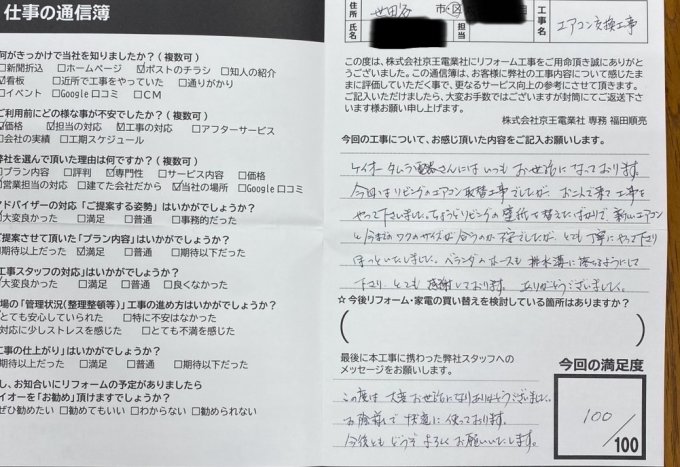 仕事の通信簿
何がきっかけで当社を知りましたか？（複数可）
□新聞折込 □ホームページ ☑ポストのチラシ □知人の紹介
☑看板 □近所で工事をやっていた □通りがかり
□イベント □Google口コミ □CM
ご利用前にどの様な事が不安でしたか？（複数可）
☑価格 ☑担当の対応 ☑工事の対応 □アフターサービス
□会社の実績 □工期スケジュール
弊社を選んで頂いた理由は何ですか？（複数可）
□プラン内容 □評判 ☑専門性 □サービス内容 □価格
☑営業担当の対応 □建てた会社だから ☑当社の場所 □Google口コミ
アドバイザーの対応「ご提案する姿勢」はいかがでしたか？
☑大変良かった □満足 □普通 □事務的だった
ご提案させて頂いた「プラン内容」はいかがでしたか？
□期待以上だった ☑満足 □普通 □期待以下だった
工事スタッフの対応」はいかがでしたか？
☑大変良かった □満足 □普通 □良くなかった
現場の「管理状況(整理整頓等)」工事の進め方はいかがでしたか？
□とても安心していられた □特に不安はなかった
□対応に少しストレスを感じた □とても不満を感じた
工事の仕上がり」はいかがでしたか？
□期待以上だった □満足 □普通 □期待以下だった
もし、お知合いにリフォームの予定がありましたら
イオーを「お勧め」頂けますでしょうか？
□ぜひ勧めたい □勧めてもいい □わからない □勧められない
住所 世田谷 市・区
氏名 担当
工事名 エアコン交換工事
この度は、株式会社京王電業社にリフォーム工事をご用命頂き誠にありがとう
ございました。この通信簿は、お客様に弊社の工事内容について感じたまま
に評価していただく事で、更なるサービス向上の参考にさせて頂きます。
ご記入いただけましたら、大変お手数ではございますが封筒にてご返送下さい
ます様お願い申し上げます。
株式会社京王電業社 専務 福田順亮
今回の工事について、お感じ頂いた内容をご記入お願いします。
ケイオータムラ電器さんにはいつもお世話になっております。
今回はリビングのエアコン取替工事でしたが、お二人で来て工事を
やって下さいました。ちょうどリビングの壁紙を替えたばかりで新しいエアコン
と今までのワクのサイズが合うのか不安でしたが、とても丁寧にやって下さり
ほっといたしました。ベランダのホースも排水溝に流れるようにして
下さり、とても感謝しております。ありがとうございました。
☆今後リフォーム・家電の買い替えを検討している箇所はありますか？
最後に本工事に携わった弊社スタッフへの
メッセージをお願いします。
この度は大変お世話になりありがとうございました。
お陰様で快適に使っております。
今後ともどうぞよろしくお願いいたします。
今回の満足度
100/100